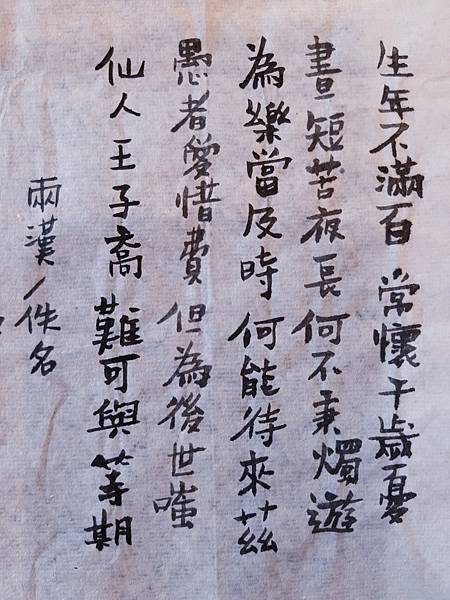 生年不滿百 常懷千歲憂
晝短苦夜長何不秉燭遊
為樂當及時 何能待來茲
愚者愛惜費 但為後世嗤
仙人王子喬 難可與等期
兩漢/佚名